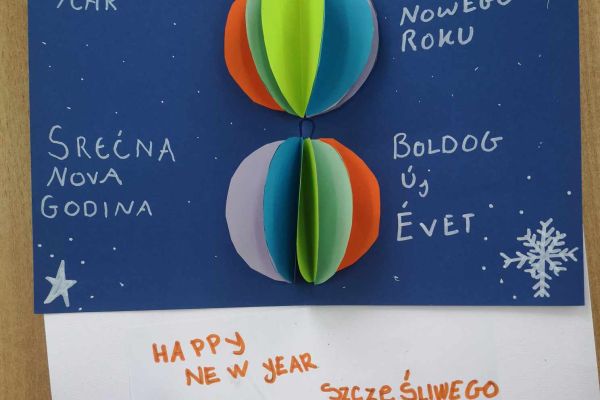 YEAR
NOWEGO
ROKU
SREĆNA
NOVA
GODINA
BOLDOG
Új
ÉVET
HAPPY
NEW YEAR
SZCZĘŚLIWEGO